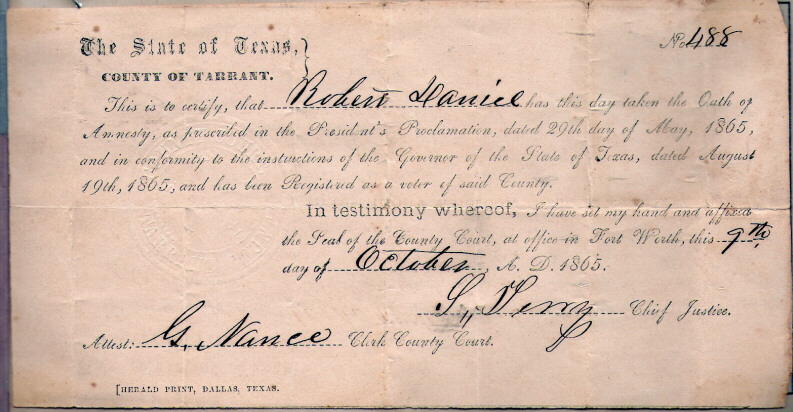 The State of Texas, }
No 488
COUNTY OF TARRANT.
This is to certify, that Robert Daniel has this day taken the Oath of
Amnesty, as prescribed in the President's Proclamation, dated 29th day of May, 1865,
and in conformity to the instructions of the Governor of the State of Texas, dated August
19th, 1865, and has been Registered as a voter of said County.
In testimony whereof, I have set my hand and affixed
the Seal of the County Court, at office in Fort Worth, this 9th
day of October, A. D. 1865.
S. Terry Chief Justice.
Attest: G. Nance Clerk County Court.
[HERALD PRINT, DALLAS, TEXAS.